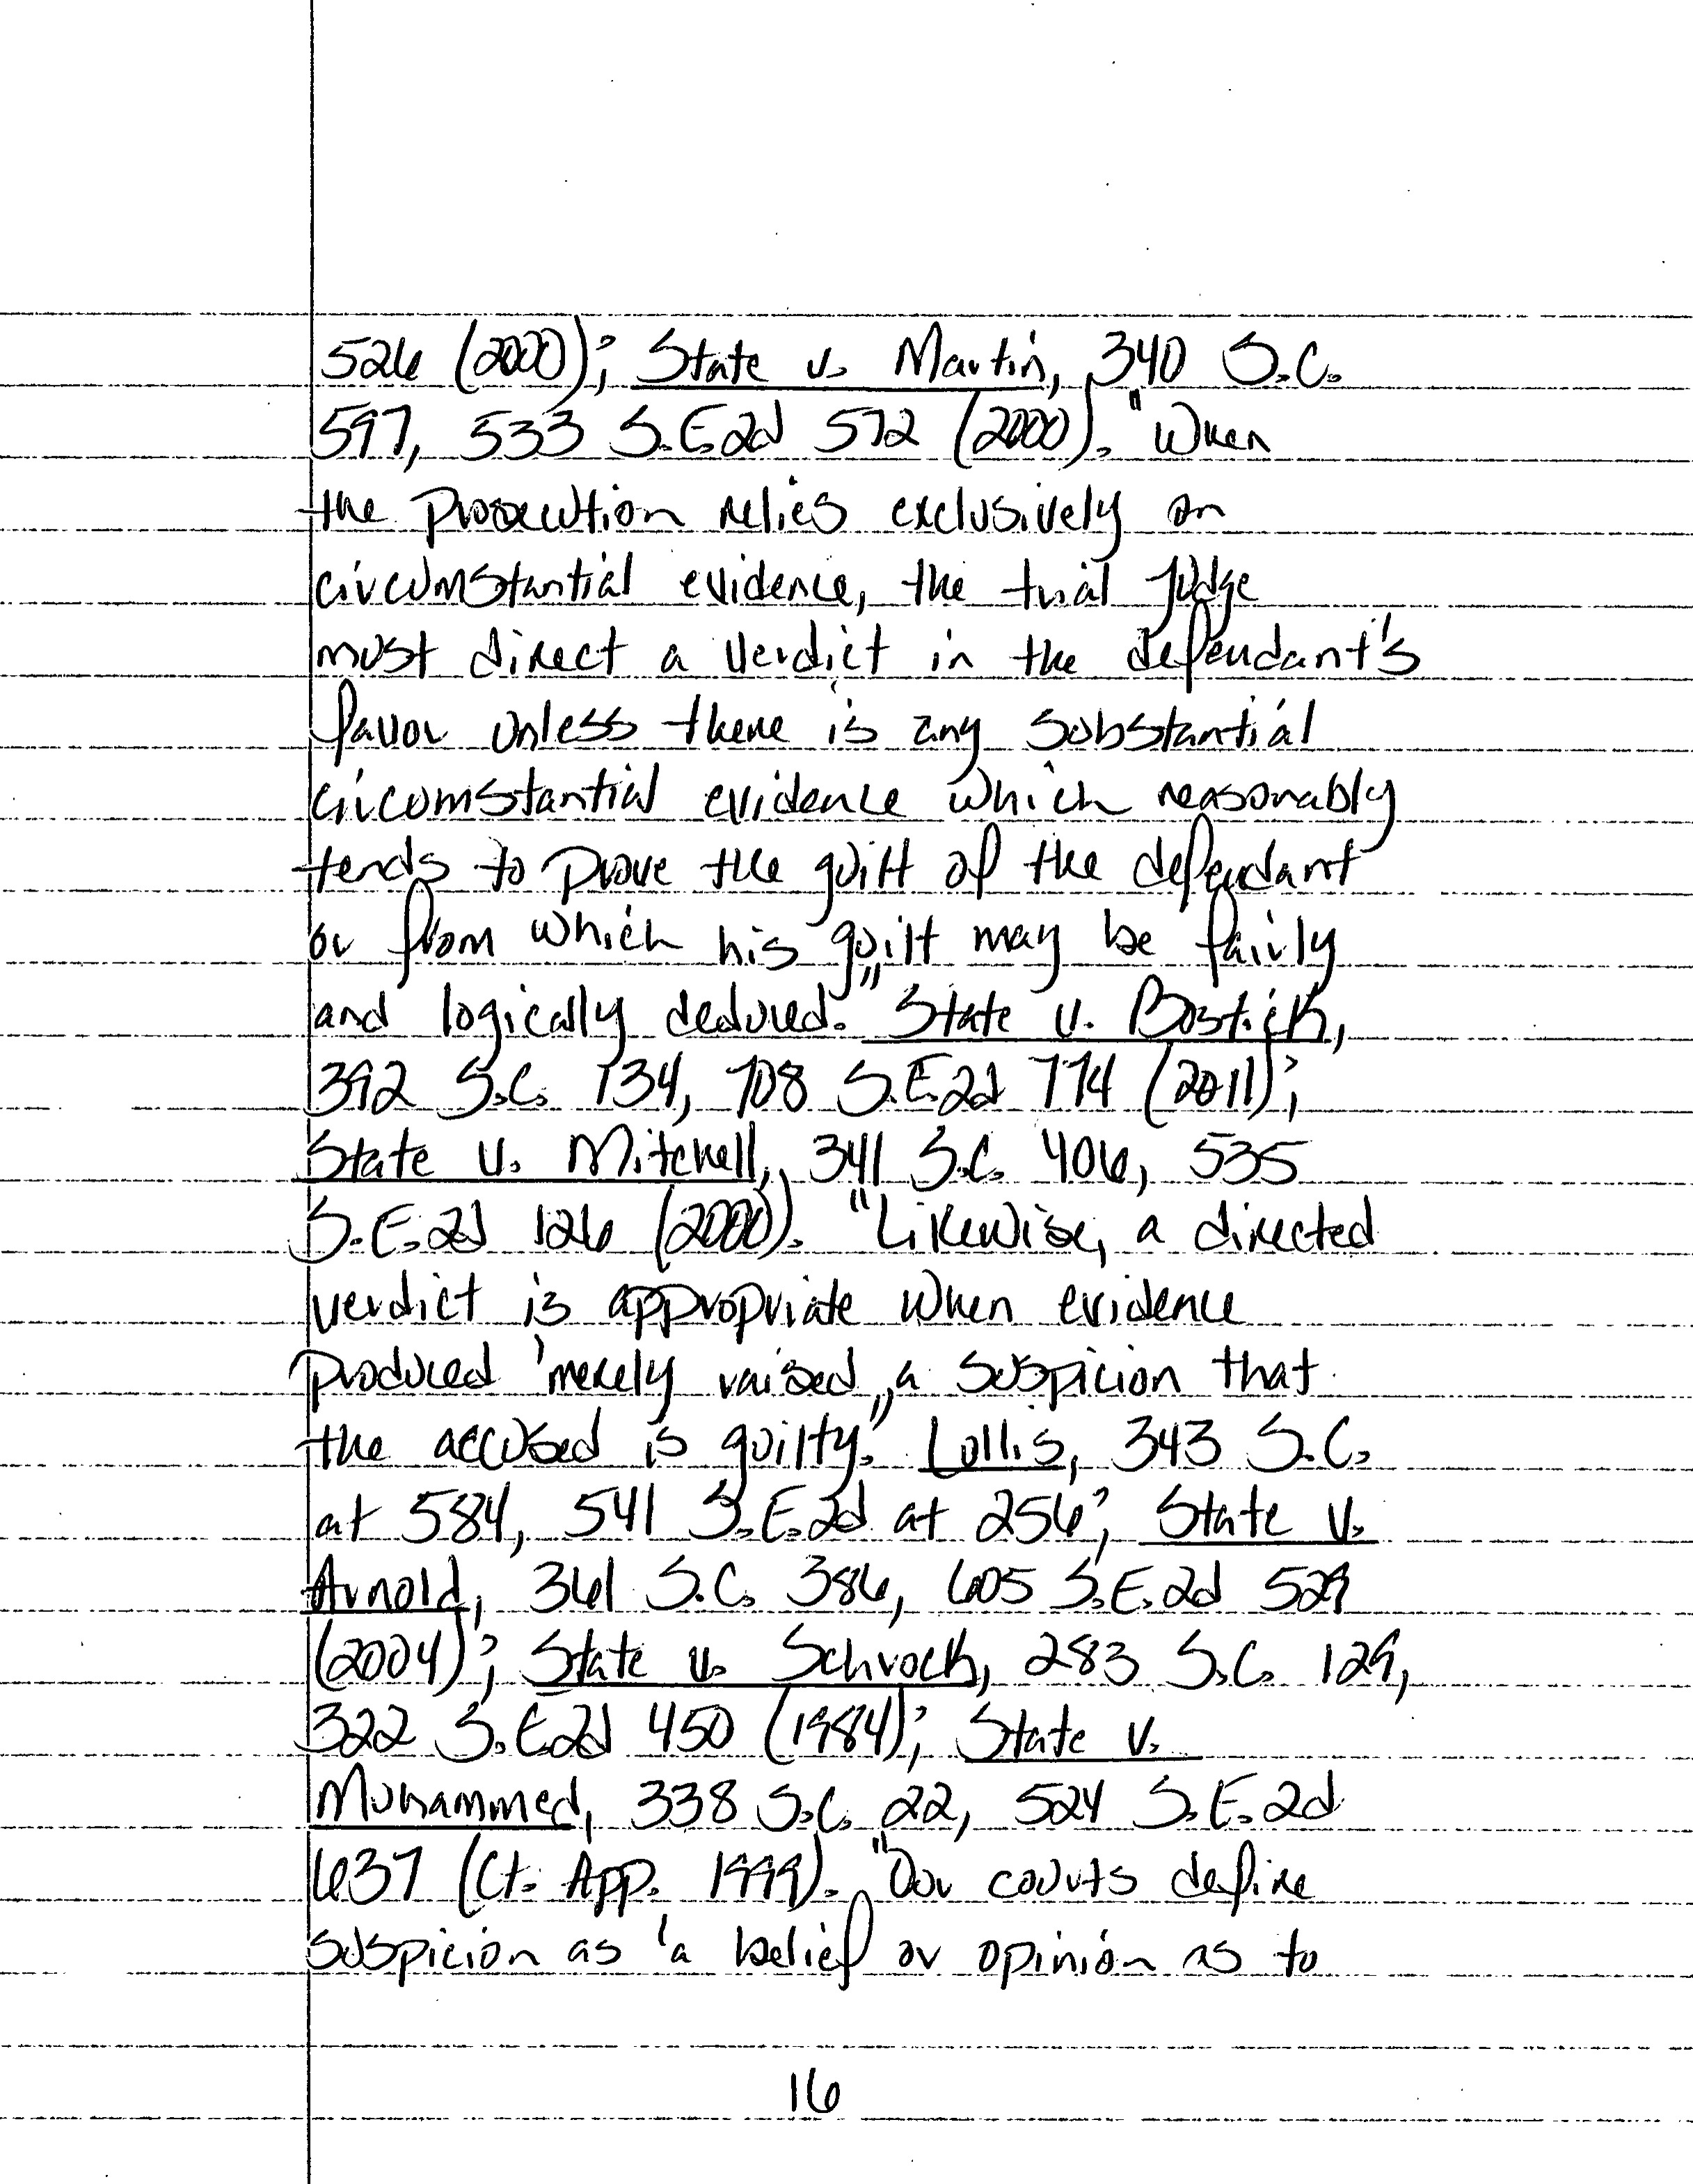 526 (2000); State v. Martin, 340 S.C.
597, 533 S.E.2d 572 (2000). "When
the prosecution relies exclusively on
circumstantial evidence, the trial judge
must direct a verdict in the defendant's
favor unless there is any substantial
circumstantial evidence which reasonably
tends to prove the guilt of the defendant
or from which his guilt may be fairly
and logically deduced." State v. Bostick,
392 S.C. 134, 708 S.E.2d 774 (2011);
State v. Mitchell, 341 S.C. 406, 535
S.E.2d 126 (2000). "Likewise, a directed
verdict is appropriate when evidence
produced 'merely raised a suspicion that
the accused is guilty." Lollis, 343 S.C.
at 584, 541 S.E.2d at 256; State v.
Arnold, 361 S.C. 386, 605 S.E.2d 529
(2004); State v. Schrock, 283 S.C. 129,
322 S.E.2d 450 (1984); State v.
Muhammed, 338 S.C. 22, 524 S.E.2d
637 (Ct. App. 1999). "Our courts define
suspicion as 'a belief or opinion as to
16